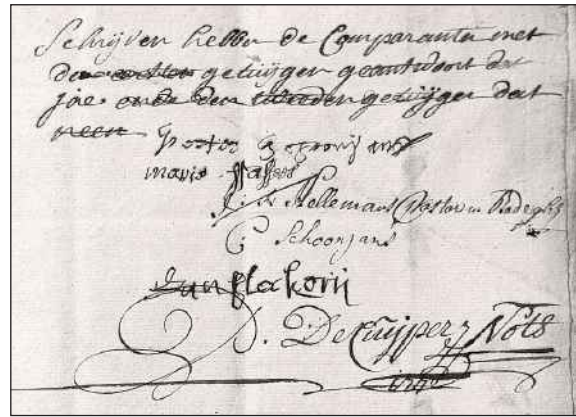 Schrijven hebben de Comparanten met
den eersten getuijgen geantwoort dat
jae ende den tweeden getuijger dat
neen
Peeter
marie
Stellemans Pastor in
C. Schoonjans
Jan flakorij
De Cuijper Nots